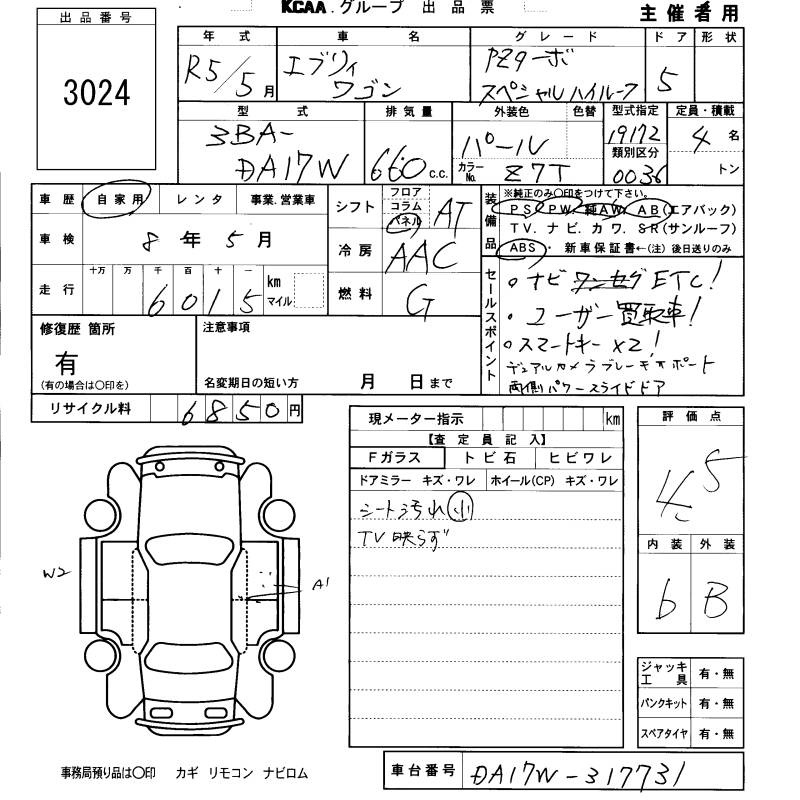 KCAA.グループ 出品票
主催者用
出品番号
3024
年式 車名 グレード ドア 形状
R5/5月 エブリィ PZターボ 5
ワゴン スペシャルハイルーフ
型式 排気量 外装色 色替 型式指定 定員・積載
3BA- 660 c.c. パール 19172 4名
DA17W カラーNo. Z7T 類別区分 0036 トン
車歴 自家用 レンタ 事業.営業車
車検 8年5月
走行 十万 万 千 百 十 一
6015 km マイル
シフト フロア コラム パネル AT
冷房 AAC
燃料 G
装備品 ※純正のみ〇印をつけて下さい。
PS PW 純AW AB(エアバック)
TV. ナビ. カワ. SR(サンルーフ)
ABS・ 新車保証書←(注)後日送りのみ
セールスポイント
。ナビ ワンセグ ETC!
・ユーザー買取車!
。スマートキーx2!
デュアルカメラブレーキサポート
両側パワースライドドア
修復歴 箇所
有
(有の場合は〇印を)
注意事項
名変期日の短い方 月 日まで
リサイクル料 6850円
現メーター指示 km
【査定員記入】
Fガラス トビ石 ヒビワレ
ドアミラー キズ・ワレ ホイール(CP) キズ・ワレ
シート汚れ小
TV 映らず
評価点
4.5
内装 外装
b B
W2
A1
ジャッキ工具 有・無
パンクキット 有・無
スペアタイヤ 有・無
事務局預り品は〇印 カギ リモコン ナビロム
車台番号 DA17W-317731